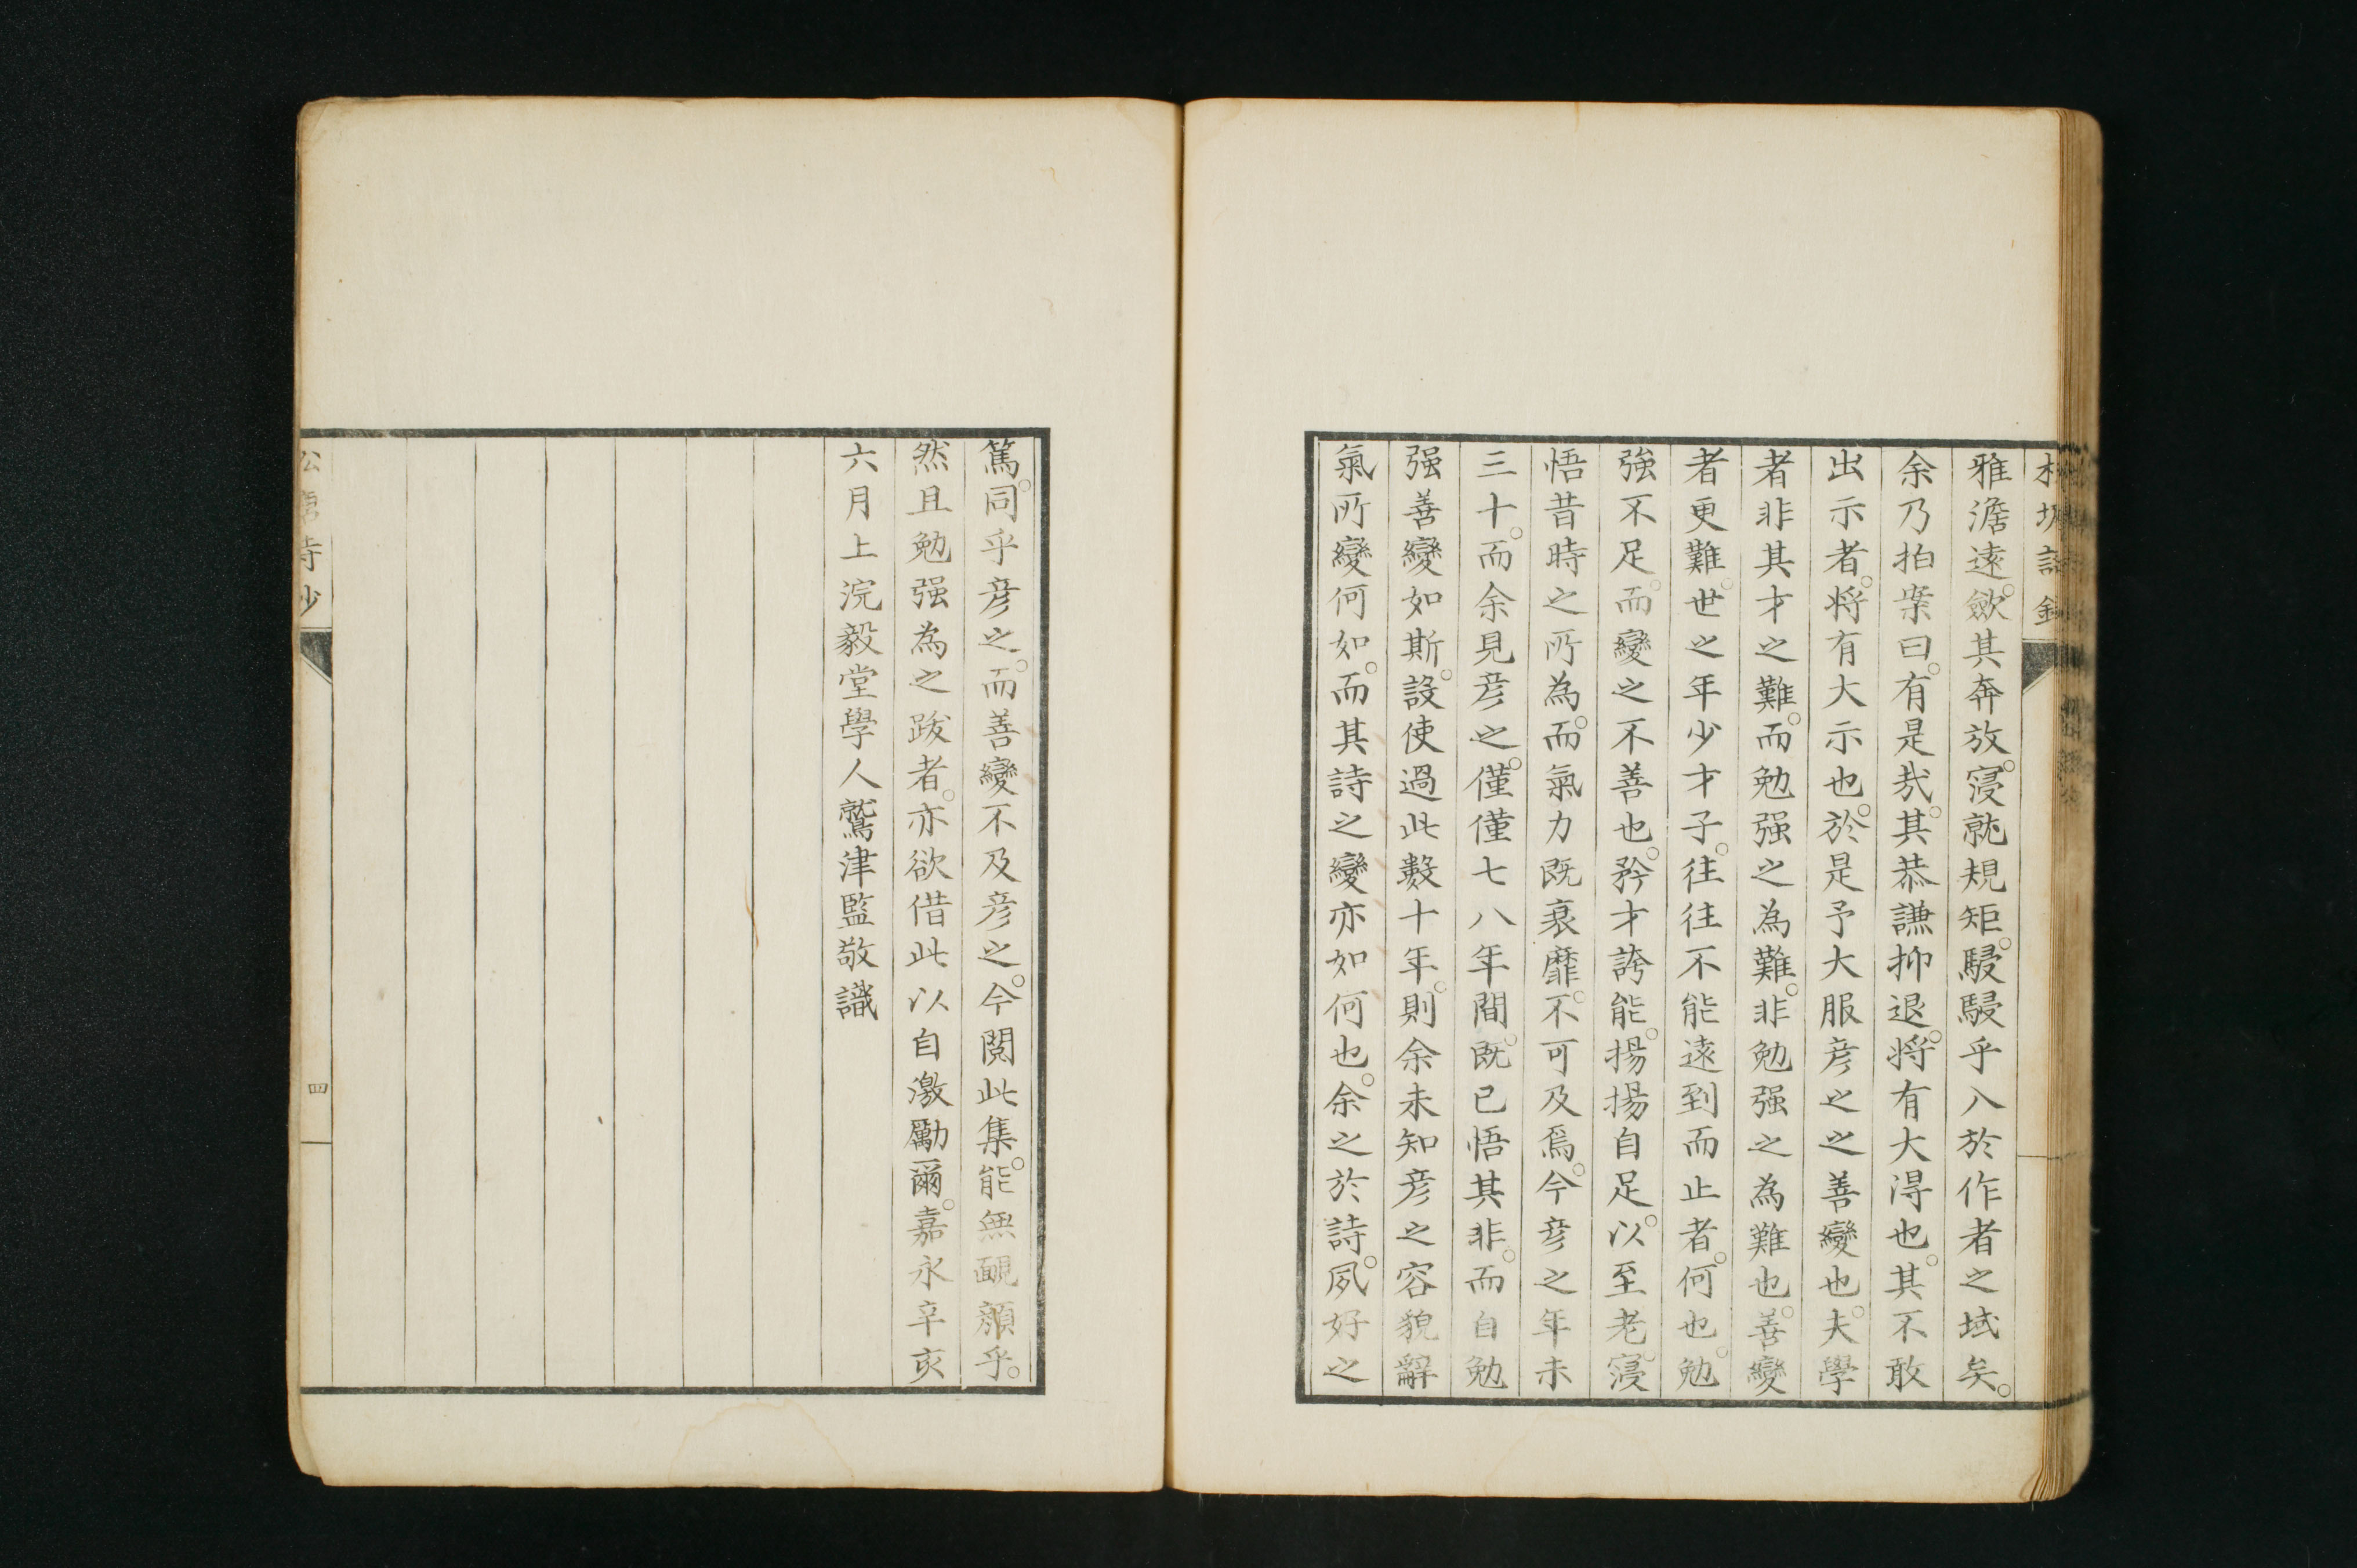 雅澹遠。斂其奔放。寖就規矩。駸駸乎入於作者之域矣。
余乃拍案曰。有是哉。其恭謙抑退。将有大得也。其不敢
出示者。将有大示也。於是予大服彦之之善變也。夫學
者非其才之難。而勉强之為難。非勉强之為難也。善變
者更難。世之年少才子。往往不能遠到而止者。何也。勉
強不足。而變之不善也。矜才誇能。揚揚自足。以至老。寖
悟昔時之所為。而氣力既衰靡。不可及焉。今彦之年未
三十。而余見彦之。僅僅七八年間。既已悟其非。而自勉
强善變如斯。設使過此數十年。則余未知彦之容貌辭
氣所變何如。而其詩之變亦如何也。余之於詩。夙好之
篤。同乎彦之。而善變不及彦之。今閱此集。能無靦顏乎。
然且勉强為之跋者。亦欲借此以自激勵爾。嘉永辛亥
六月上浣毅堂學人鷲津監敬識
四